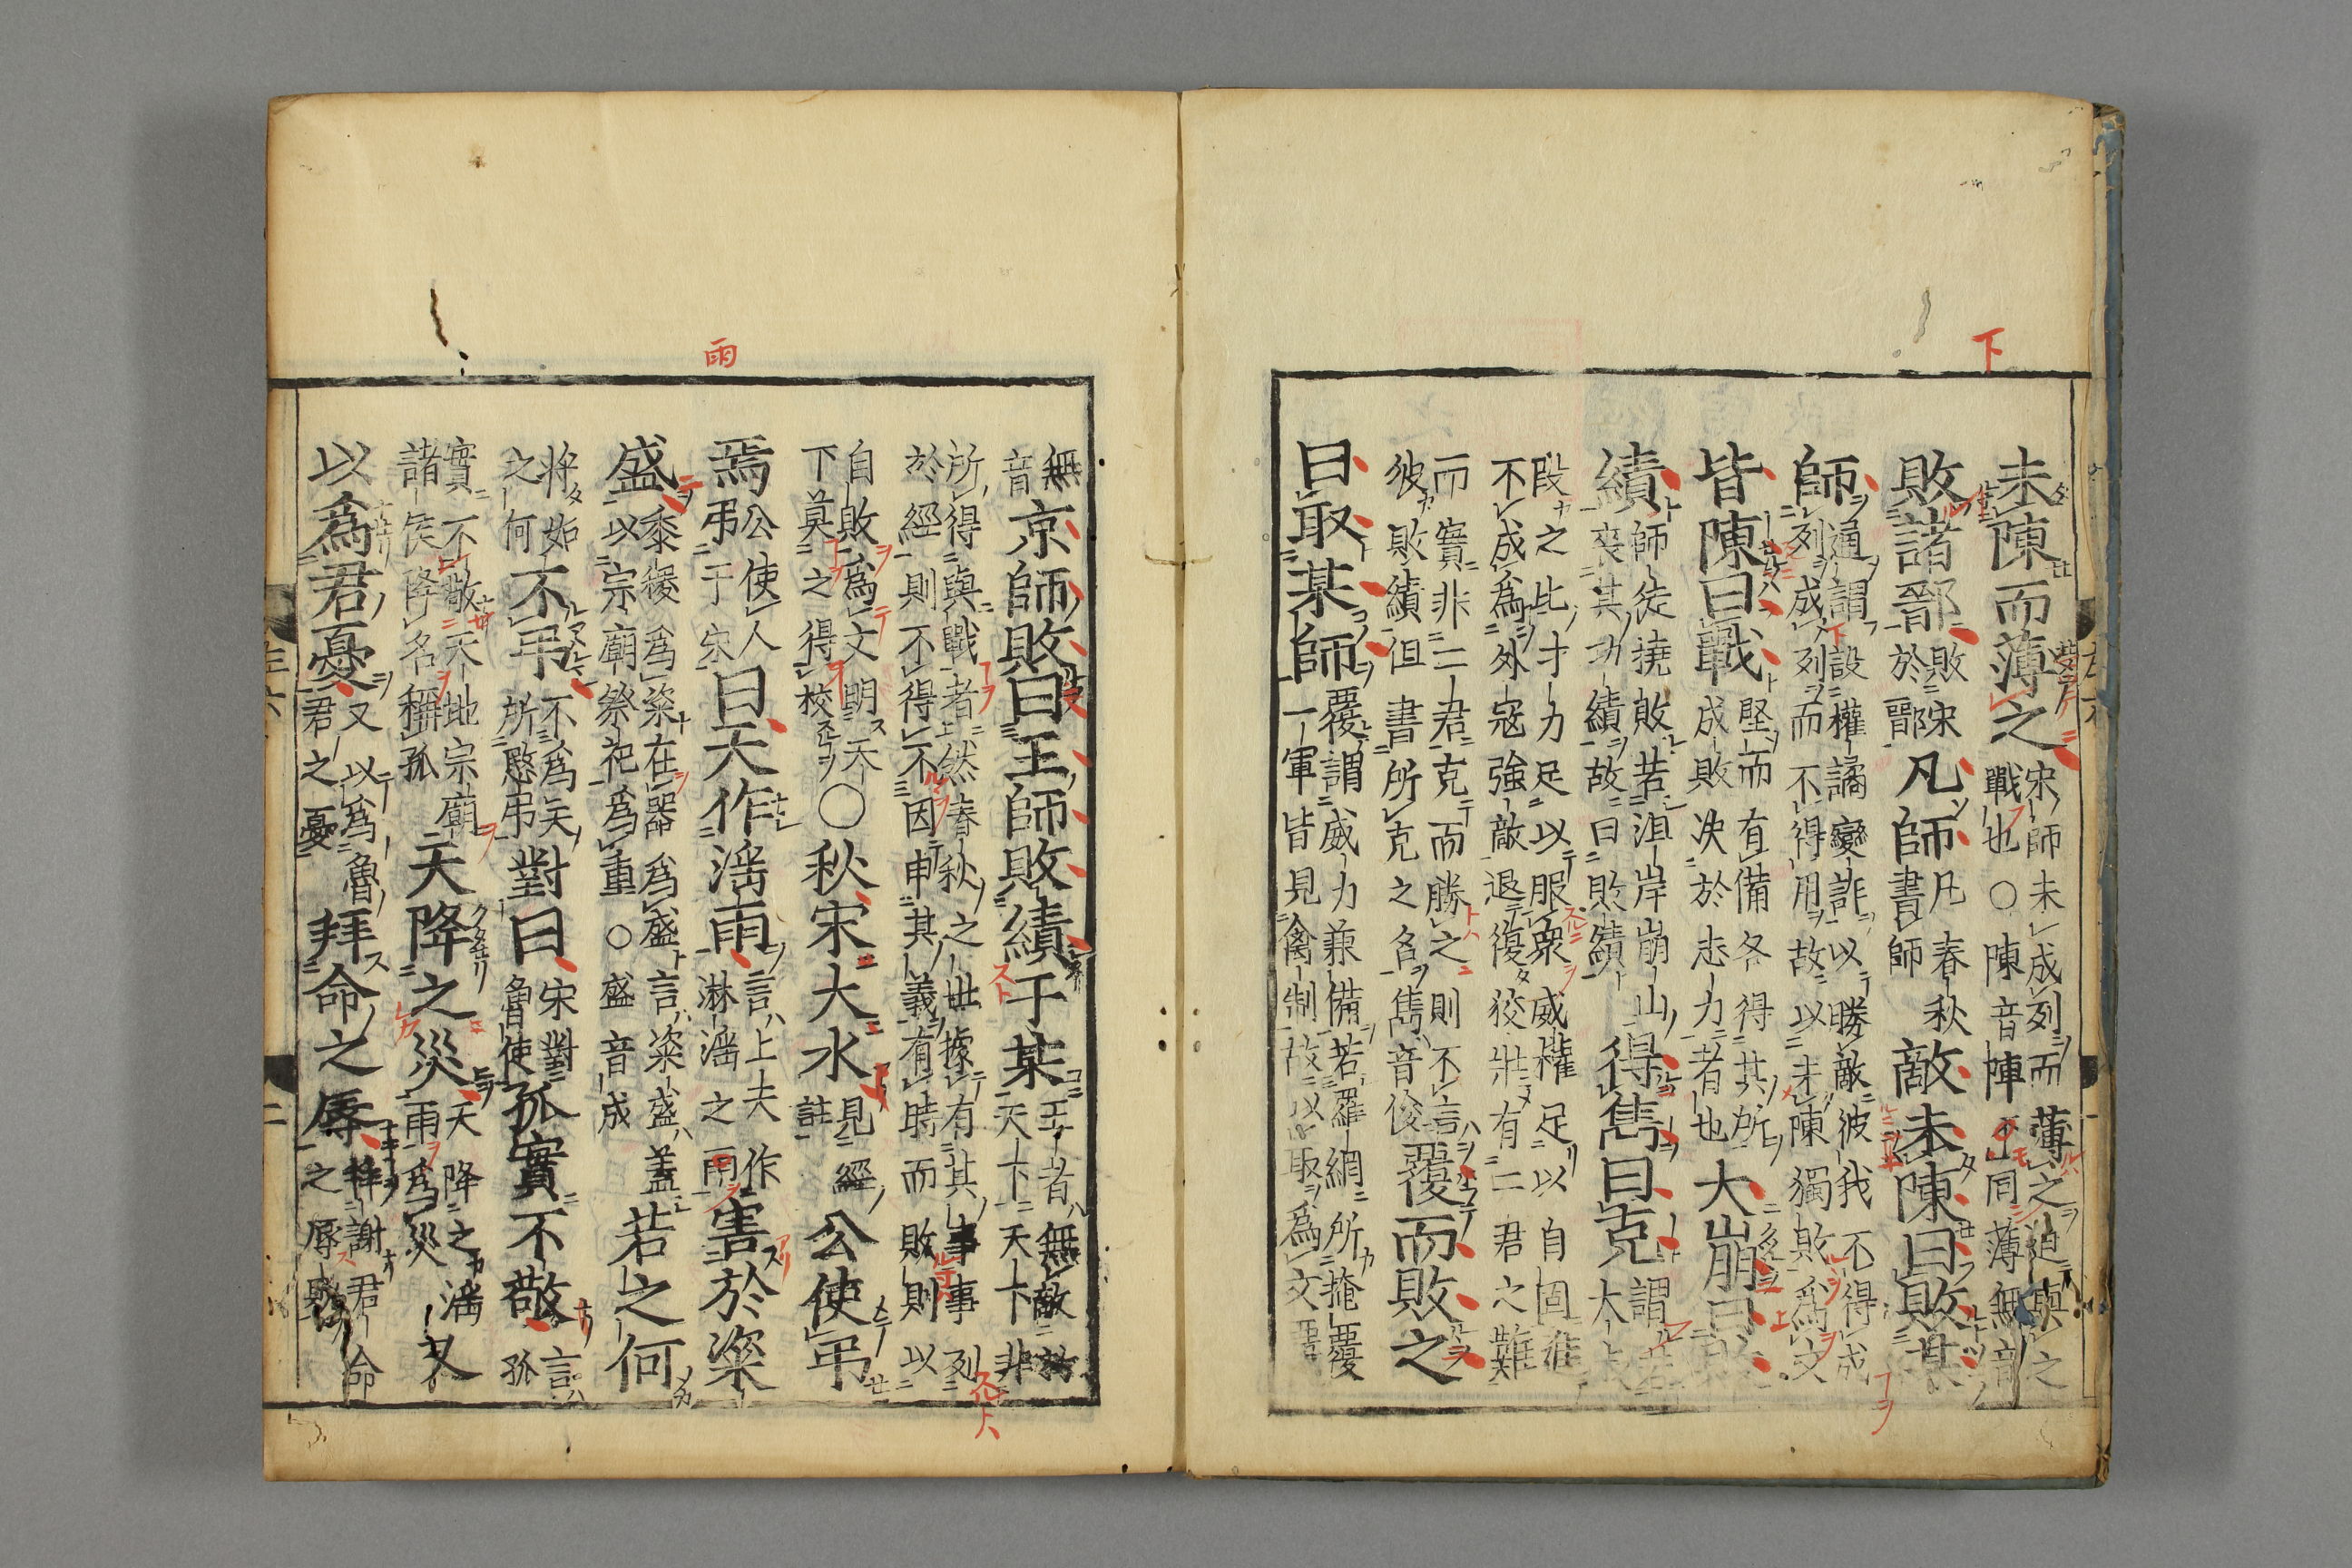 下
未陳而薄之宋師未成列而薄之迫與之
戰也○陳音陣
敗諸鄑敗宋於鄑凡師凡春秋書師敵未陳曰敗某
師通謂設權譎變詐以勝敵彼我不得成
列成列而不得用故以未陳獨敗爲文
皆陳曰戰堅而有備各得其所成敗決於志力者也大崩曰敗
績師徒撓敗若沮岸崩山喪其功績故曰敗績得儁曰克謂若大叔
段之比才力足以服衆威權足以自固進
不成爲外寇強敵退復狡壯有二君之難
而實非二君克而勝之則不言
彼敗績但書所克之名儁音俊覆而敗之
曰取某師覆謂威力兼備若羅網所掩覆
一軍皆見禽制故以取爲文
雨
無音京師敗曰王師敗績于某王者無敵於天下天下非
所得與戰者然春秋之世據有其事事列
於經則不得不因申其義有時而敗則以
自敗爲文明天
下莫之得校○秋宋大水見經註公使弔
焉公使人弔于宋曰天作淫雨言上天作淋淫之雨害於粢
盛黍稷爲粢在器爲盛言粢盛蓋以宗廟祭祀爲重○盛音成若之何
將如之何不弔不爲天所愍弔對曰宋對魯使孤實不敬言孤
實不敬天地宗廟諸侯降名稱孤天降之災天降之淫雨爲災又
以爲君憂又以爲魯君之憂拜命之辱拜謝君命之辱